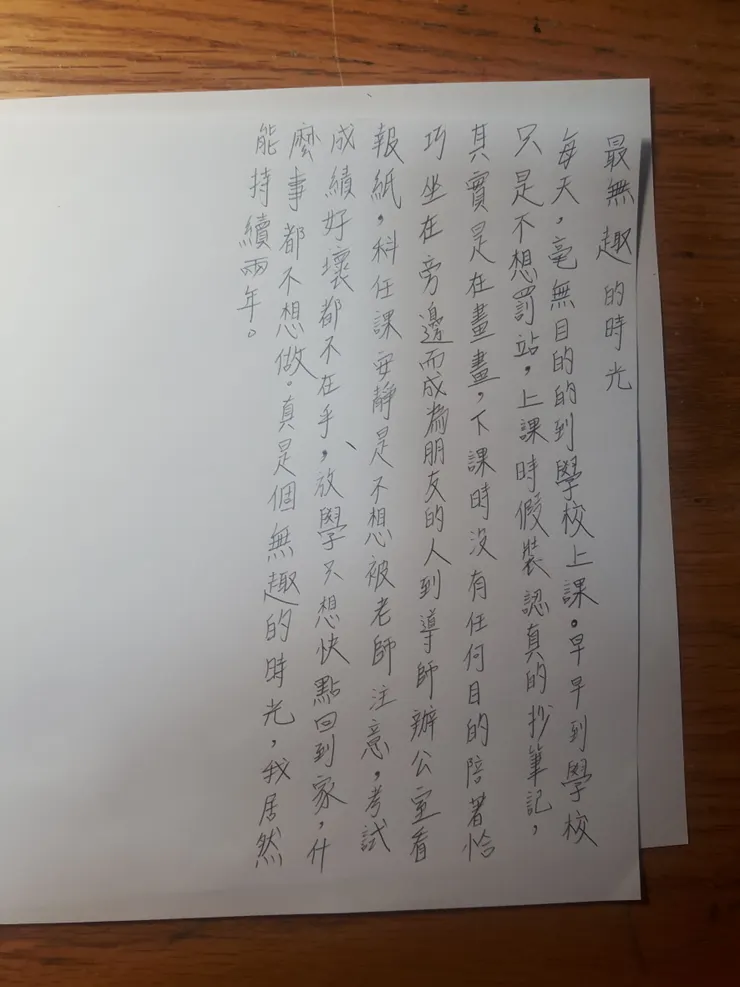 最無趣的時光
每天，毫無目的的到學校上課。早早到學校
只是不想罰站，上課時假裝認真的抄筆記，
其實是在畫畫，下課時沒有任何目的陪著恰
巧坐在旁邊而成為朋友的人到導師辦公室看
報紙，科任課安靜是不想被老師注意，考試
成績好壞都不在乎，放學只想快點回到家，什
麼事都不想做。真是個無趣的時光，我居然
能持續兩年。